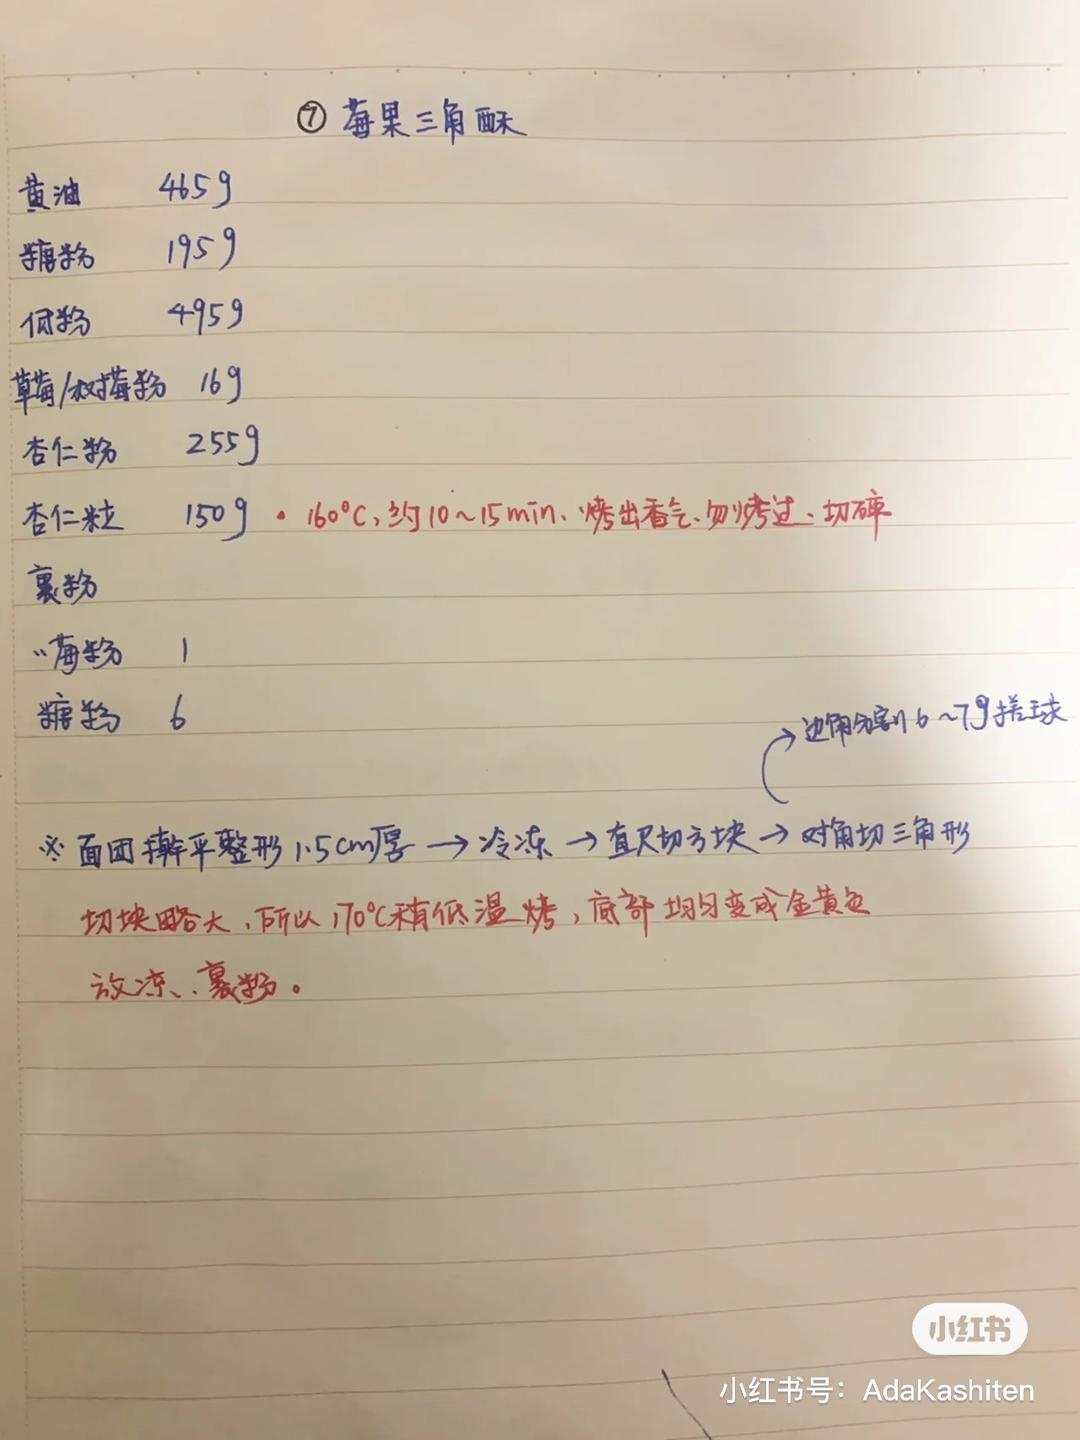 ⑦ 莓果三角酥
黄油 465g
糖粉 195g
低粉 495g
草莓/树莓粉 16g
杏仁粉 255g
杏仁粒 150g • 160°C、约10~15min、烤出香气、勿烤过、切碎
裹粉
莓粉 1
糖粉 6
边角分割6~7g搓球
※ 面团擀平整形1.5cm厚→冷冻→直尺切方块→对角切三角形
切块略大、所以170°C稍低温烤，底部均匀变成金黄色
放凉、裹粉。
小红书
小红书号：AdaKashiten